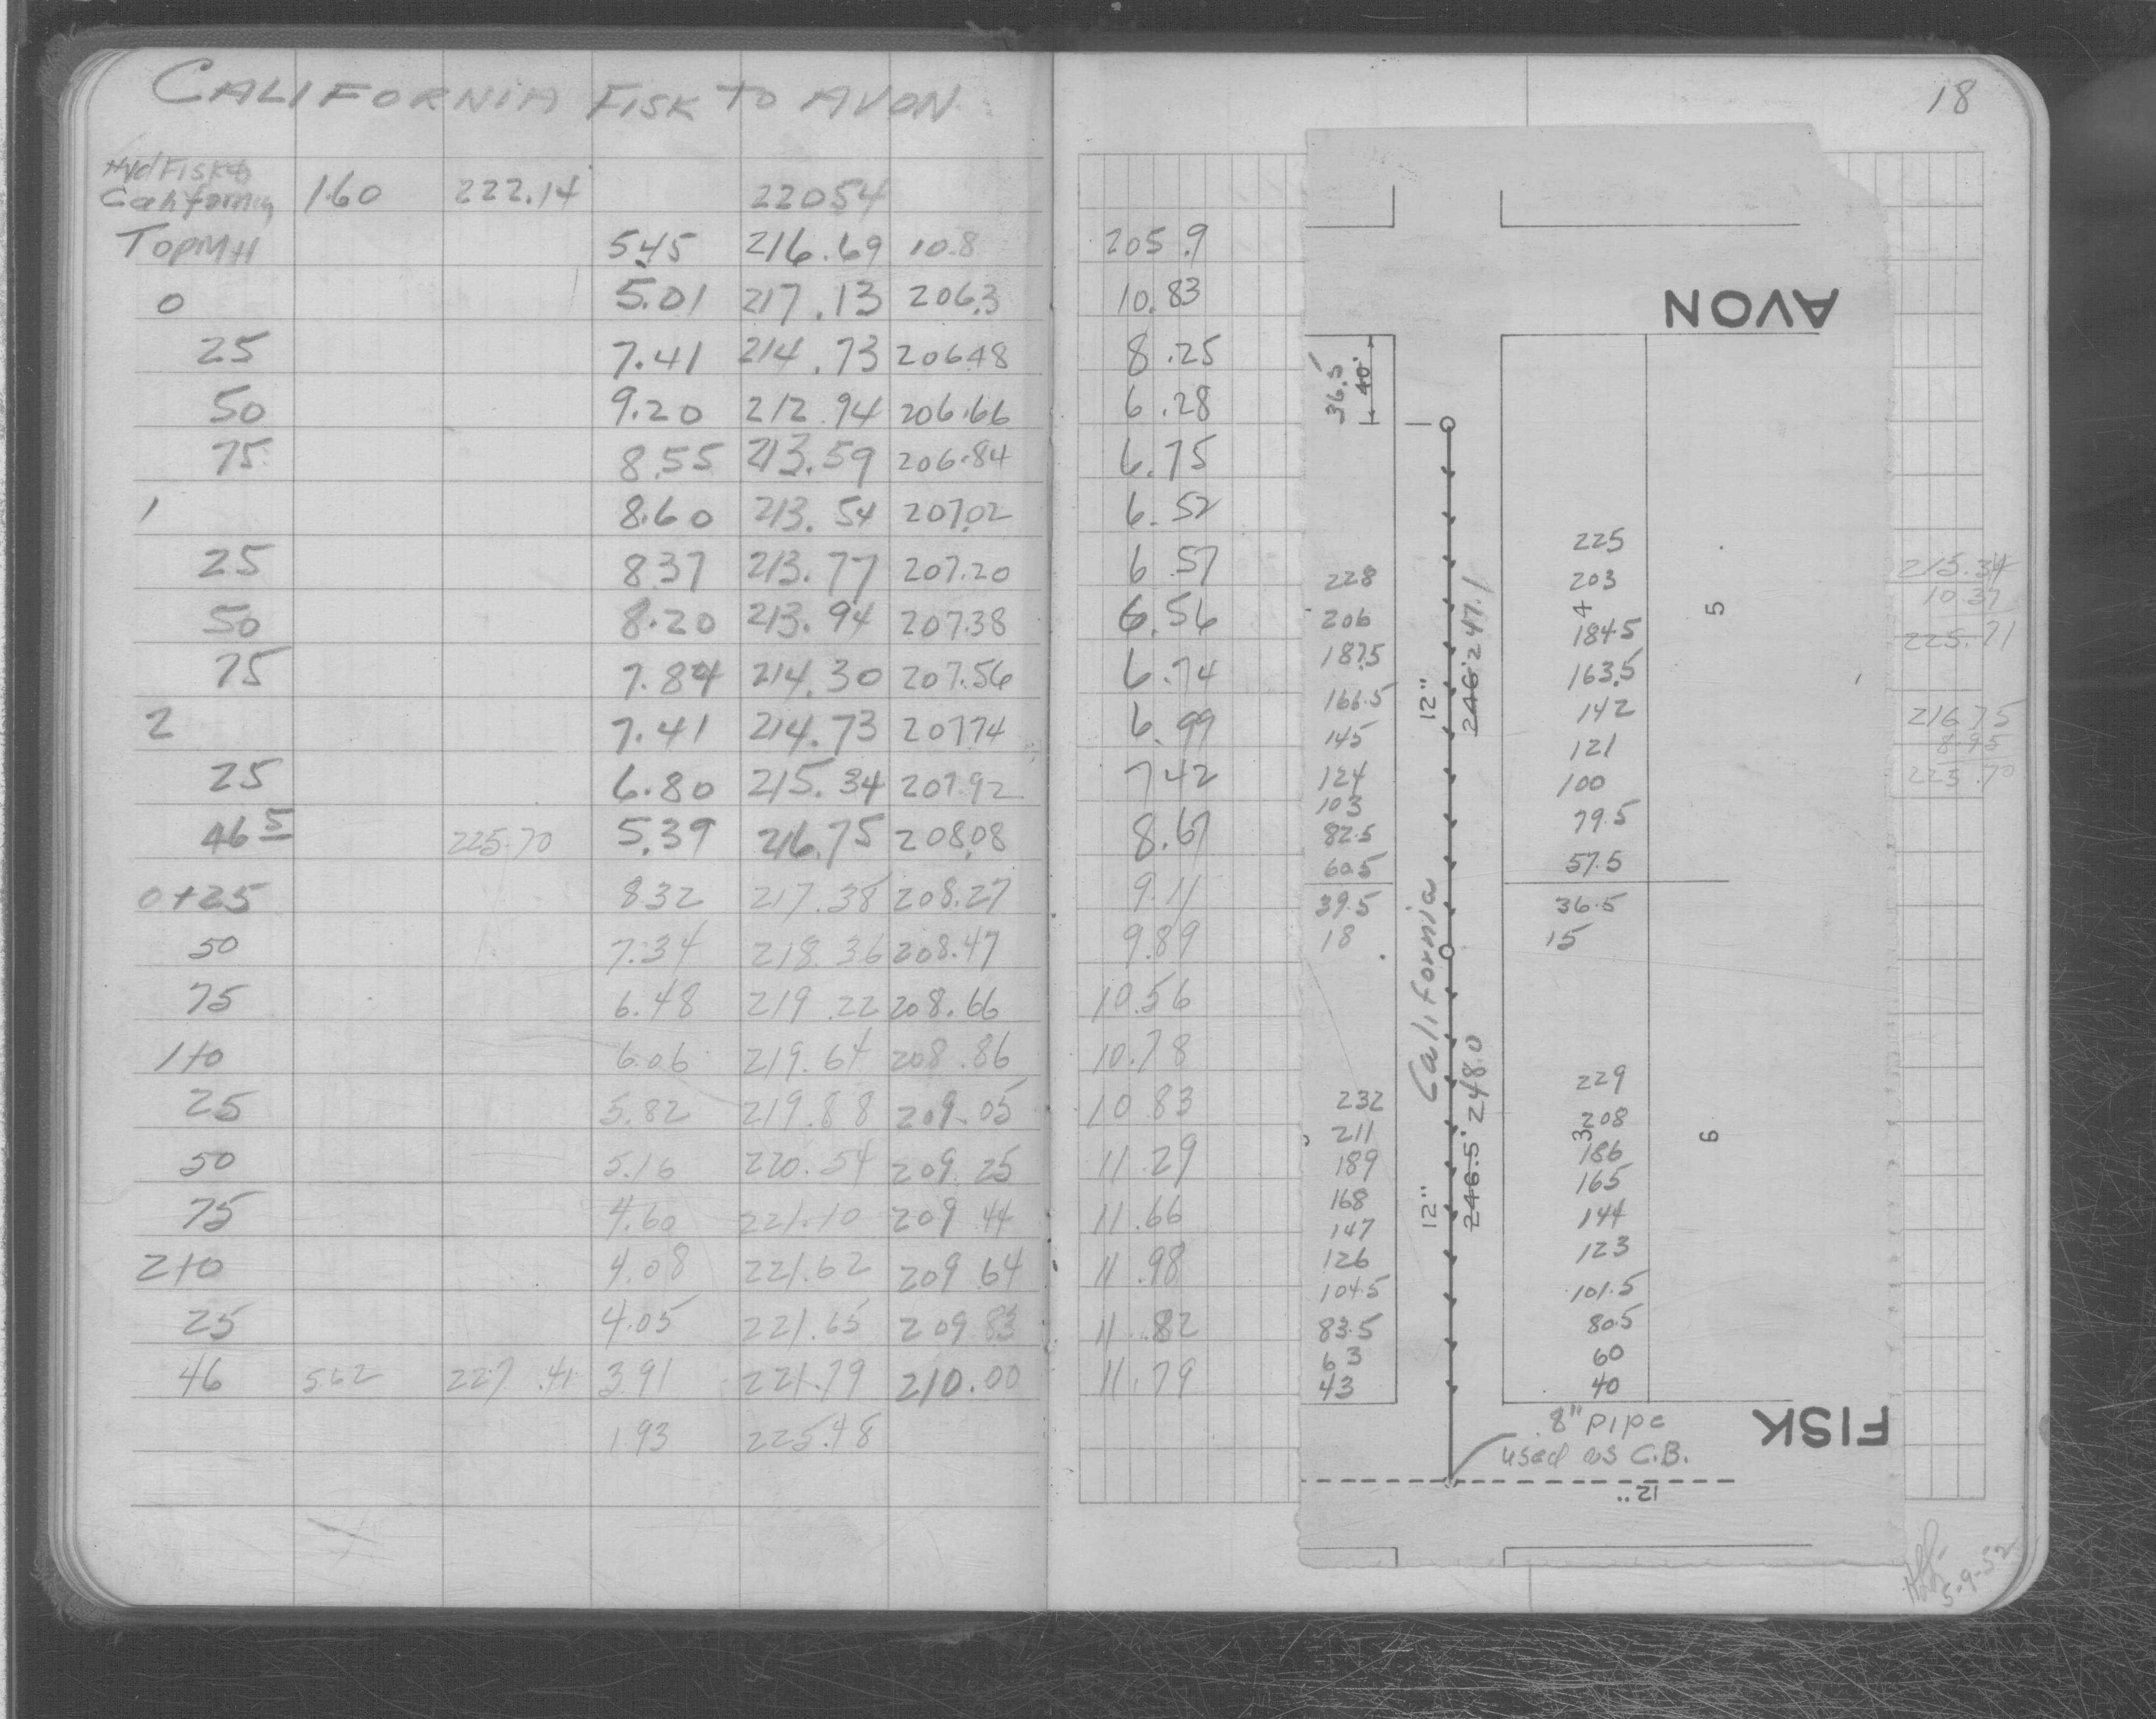 CALIFORNIA FISK TO AVON
Hyd Fisk &
California 1.60 222.14 220 54
TOPMH 5.45 216.69 10.8 205.9
0 5.01 217.13 206.3 10.83
25 7.41 214.73 206.48 8.25
50 9.20 212.94 206.66 6.28
75 8.55 213.59 206.84 6.75
1 8.60 213.54 207.02 6.52
25 8.37 213.77 207.20 6.57
50 8.20 213.94 207.38 6.56
75 7.84 214.30 207.56 6.74
2 7.41 214.73 207.74 6.99
25 6.80 215.34 207.92 7.42
46 5 225.70 5.39 216.75 208.08 8.67
0+25 8.32 217.38 208.27 9.11
50 7.34 218.36 208.47 9.89
75 6.48 219.22 208.66 10.56
1+0 6.06 219.64 208.86 10.78
25 5.82 219.88 209.05 10.83
50 5.16 220.54 209.25 11.29
75 4.60 221.10 209.44 11.66
2+0 4.08 221.62 209.64 11.98
25 4.05 221.65 209.83 11.82
46 5.62 227.41 3.91 221.79 210.00 11.79
1.93 225.48
18
AVON
36.5'
40'
228
206
187.5
166.5
145
124
103
82.5
60.5
39.5
18
12"
246.2 247.1
California
225
203
4
184.5
163.5
142
121
100
79.5
57.5
36.5
15
5
232
211
189
168
147
126
104.5
83.5
63
43
12"
246.5' 248.0
229
208
3
186
165
144
123
101.5
80.5
60
40
6
8" pipe
used as C.B.
FISK
12"
215.34
10 37
225.71
216.75
8.95
225.70
5-9-52